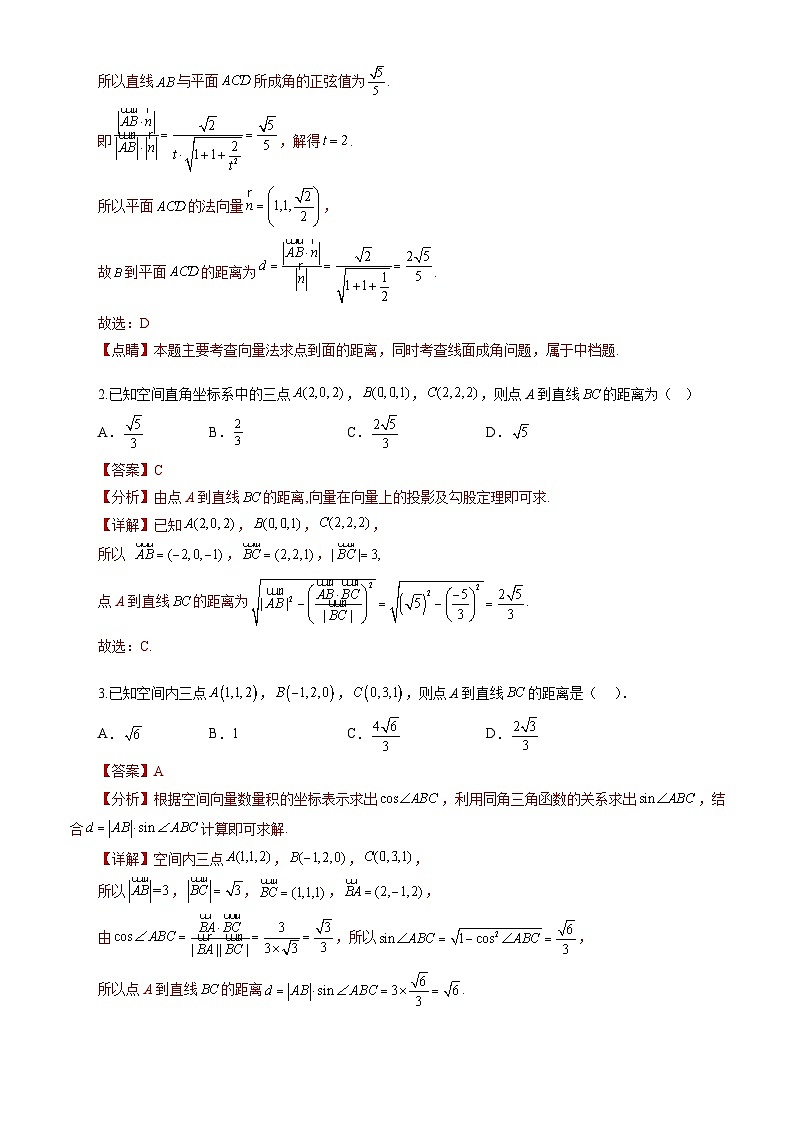 所以直线AB与平面ACD所成角的正弦值为√5/5.
即|AB·n|/(|AB|·|n|)=√2/(t·√(1+1+2/t²))=√5/5，解得t=2.
所以平面ACD的法向量n=(1,1,√2/2)，
故B到平面ACD的距离为d=|AB·n|/|n|=√2/√(1+1+1/2)=2√5/5.
故选：D
【点睛】本题主要考查向量法求点到面的距离，同时考查线面成角问题，属于中档题.
2.已知空间直角坐标系中的三点A(2,0,2)，B(0,0,1)，C(2,2,2)，则点A到直线BC的距离为（ ）
A．√5/3 B．2/3 C．2√5/3 D．√5
【答案】C
【分析】由点A到直线BC的距离,向量在向量上的投影及勾股定理即可求.
【详解】已知A(2,0,2)，B(0,0,1)，C(2,2,2)，
所以 AB=(−2,0,−1)，BC=(2,2,1)，|BC|=3,
点A到直线BC的距离为√(|AB|²−(AB·BC/|BC|)²)=√((√5)²−(−5/3)²)=2√5/3.
故选：C.
3.已知空间内三点A(1,1,2)，B(−1,2,0)，C(0,3,1)，则点A到直线BC的距离是（ ）．
A．√6 B．1 C．4√6/3 D．2√3/3
【答案】A
【分析】根据空间向量数量积的坐标表示求出cos∠ABC，利用同角三角函数的关系求出sin∠ABC，结
合d=|AB|·sin∠ABC计算即可求解.
【详解】空间内三点A(1,1,2)，B(−1,2,0)，C(0,3,1)，
所以|AB|=3，|BC|=√3，BC=(1,1,1)，BA=(2,−1,2)，
由cos∠ABC=BA·BC/(|BA||BC|)=3/(3×√3)=√3/3，所以sin∠ABC=√(1−cos²∠ABC)=√6/3，
所以点A到直线BC的距离d=|AB|·sin∠ABC=3×√6/3=√6.